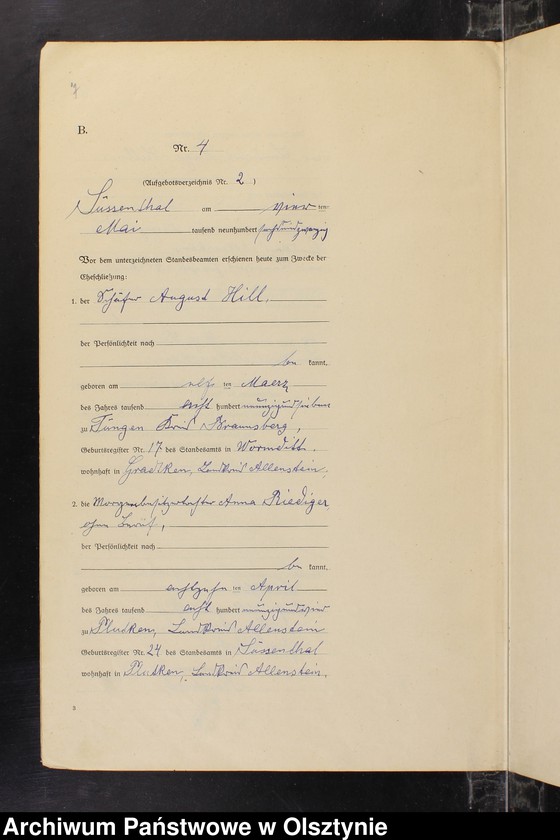 7
B.
Nr. 4
(Aufgebotsverzeichnis Nr. 2)
Süssenthal am vier ten
Mai tausend neunhundert sechsundzwanzig
Vor dem unterzeichneten Standesbeamten erschienen heute zum Zwecke der
Eheschließung:
1. der Schäfer August Hill,
der Persönlichkeit nach
be kannt,
geboren am elf ten Maerz
des Jahres tausend acht hundert neunzigundsieben
zu Tüngen Kreis Braunsberg,
Geburtsregister Nr. 17 des Standesamts in Wormditt.
wohnhaft in Gradtken, Landkreis Allenstein.
2. die Morgenbesitzertochter Anna Riediger
ohne Beruf,
der Persönlichkeit nach
be kannt,
geboren am achtzehn ten April
des Jahres tausend acht hundert neunzigundvier
zu Pludken, Landkreis Allenstein
Geburtsregister Nr. 24 des Standesamts in Süssenthal
wohnhaft in Pludken, Landkreis Allenstein.
Archiwum Państwowe w Olsztynie